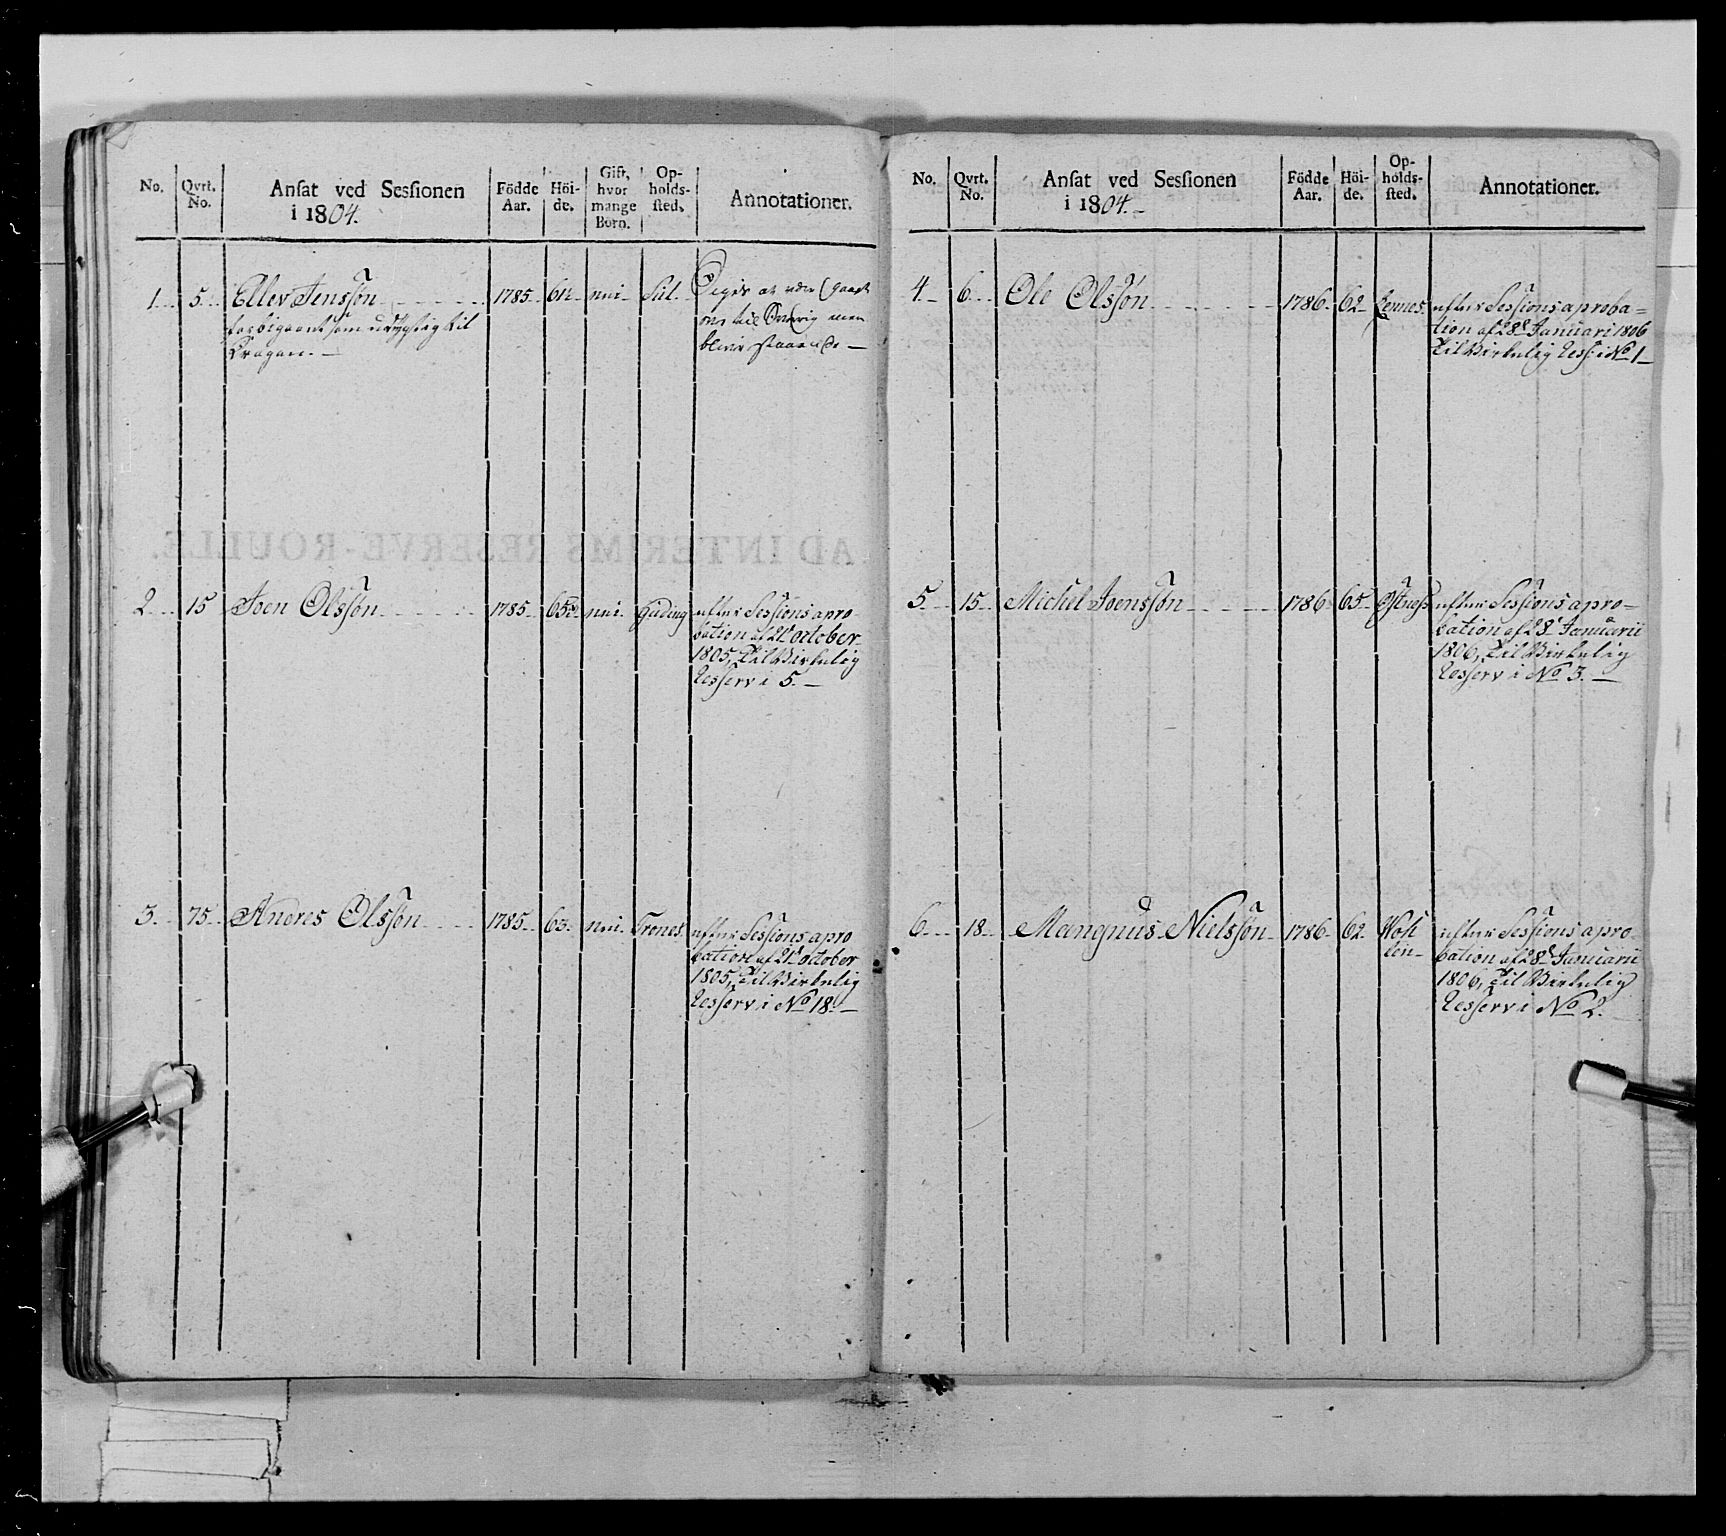 No.
Qvrt. No.
Ansat ved Sessionen
i 1804.
Födde Aar.
Höi-de.
Gift, hvor mange Born.
Op-holds-sted.
Annotationer.
1. 5. Ellev Jenssøn 1785. 61½ nei Sil.
forbigaaet som udygtig til
Dragon.
Siges at være
til Sverig men
blevne staaende
2. 15 Joen Olssøn 1785. 65 nei Guding
efter Sessions apro-
bation af 21 October
1805, til Virkelig
Resserv i 5.
3. 75. Andres Olssøn 1785. 63. nei Trones
efter Sessions apro
bation af 21 October
1805, til Virkelig
Resserv i No 18.
No.
Qvrt. No.
Ansat ved Sessionen
i 1804.
Födde Aar.
Höi-de.
Op-holds-sted.
Annotationer.
4. 6. Ole Olssøn 1786. 62.
efter Sessions aproba=
tion af 28 Januari 1806
til Virkelig Ress: i No 1
5. 15. Michel Joenssøn 1786. 65. Østness
efter Sessions apro-
bation af 28 Januarii
1806, til Virkelig
Resserv i No 3.
6. 18. Mangnus Nielssøn 1786. 62.
efter Sessions apro-
bation af 28 Januarii
1806, til Virkelig
Resserv i No 2.
AD INTERIMS RESERVE-ROULLE.